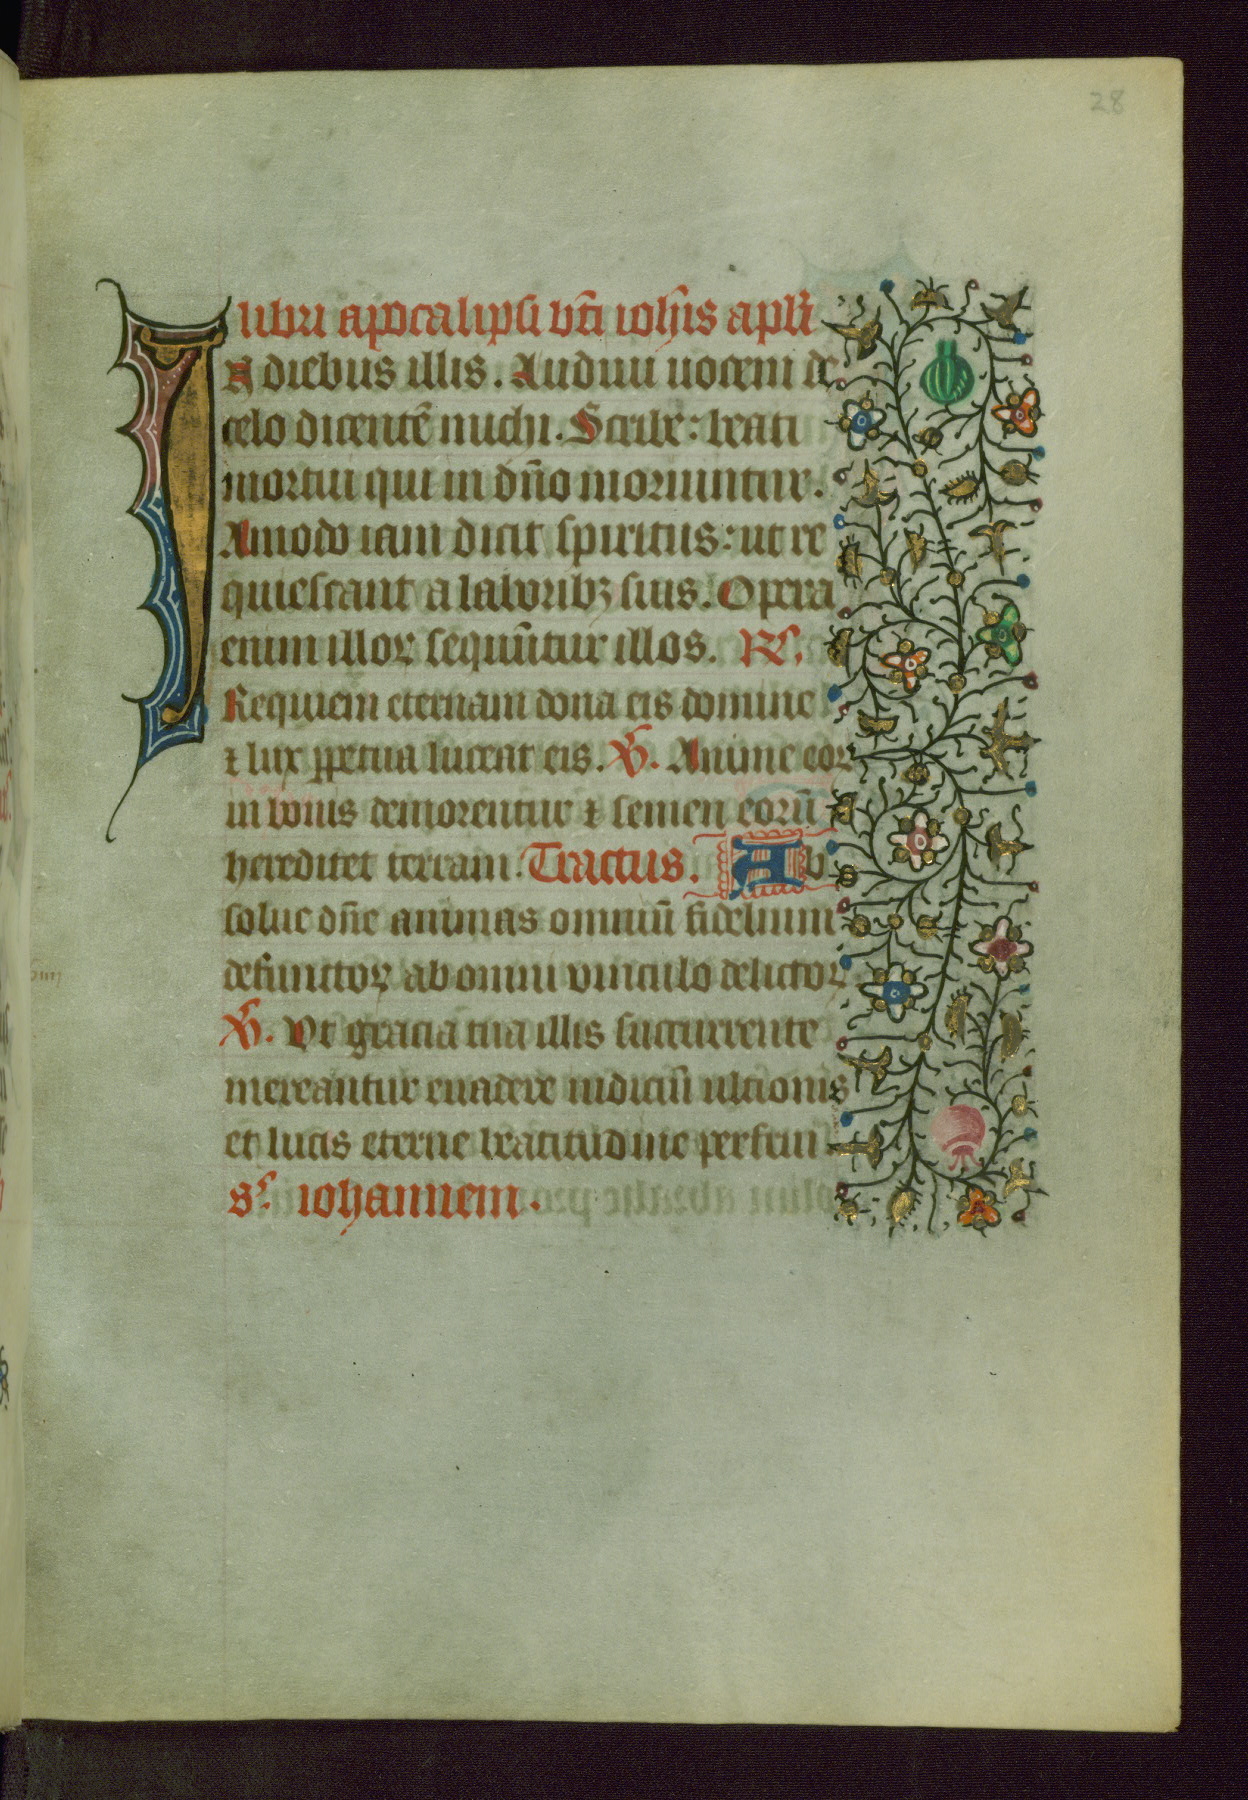 28
libri apocalipsi bt̄i ioh̄is apl̄i
IN diebus illis. Audiui uocem de
celo dicentē michi. Scribe: beati
mortui qui in dn̄o moriuntur.
Amodo iam dicit spiritus: ut re
quiescant a laboribꝫ suis. Opera
enim illoꝝ sequūtur illos. R̸.
Requiem eternam dona eis domine
⁊ lux ꝑpetua luceat eis. V̸. Anime eoꝝ
in bonis demorentur ⁊ semen eorū
hereditet terram. Tractus. Ab
solue dn̄e animas omniū fidelium
defunctoꝝ ab omni vinculo delictoꝝ
V̸. Vt gracia tua illis succurrente
mereantur euadere iudiciū ultionis
et lucis eterne beatitudine perfrui
Sᷤ iohannem.